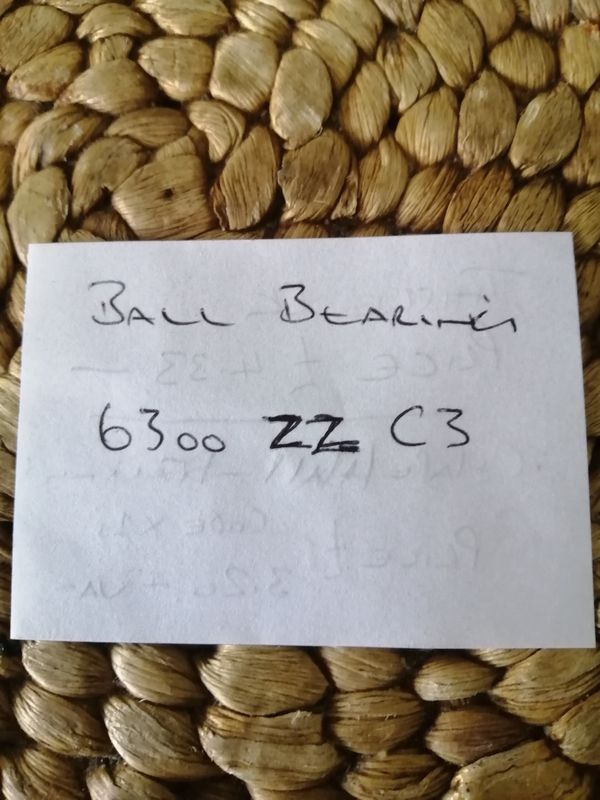 BALL BEARING
6300 ZZ C3